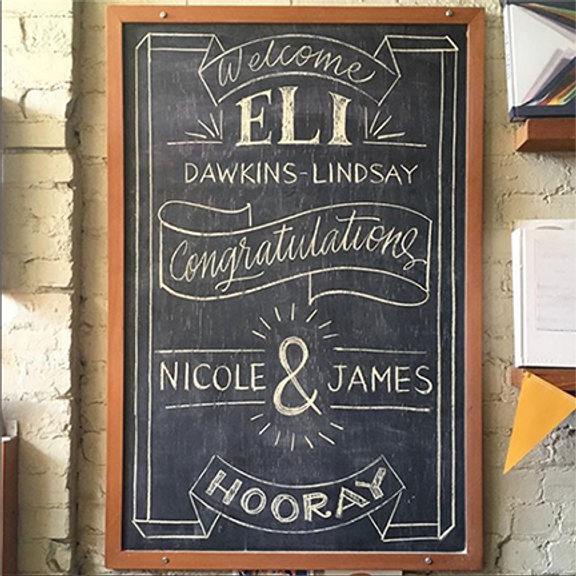 Welcome
ELI
DAWKINS-LINDSAY
Congratulations
NICOLE & JAMES
HOORAY